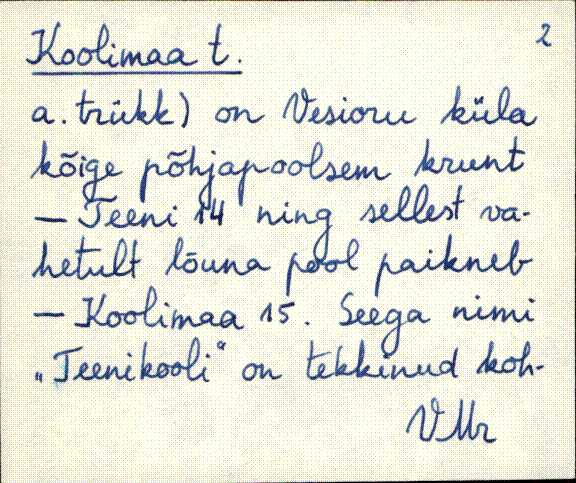 Koolimaa t. 2
a. trükk) on Vesioru küla
kõige põhjapoolsem krunt
— Teeni 14 ning sellest va-
hetult lõuna pool paikneb
— Koolimaa 15. Seega nimi
„Teenikooli“ on tekkinud koh-
VMr